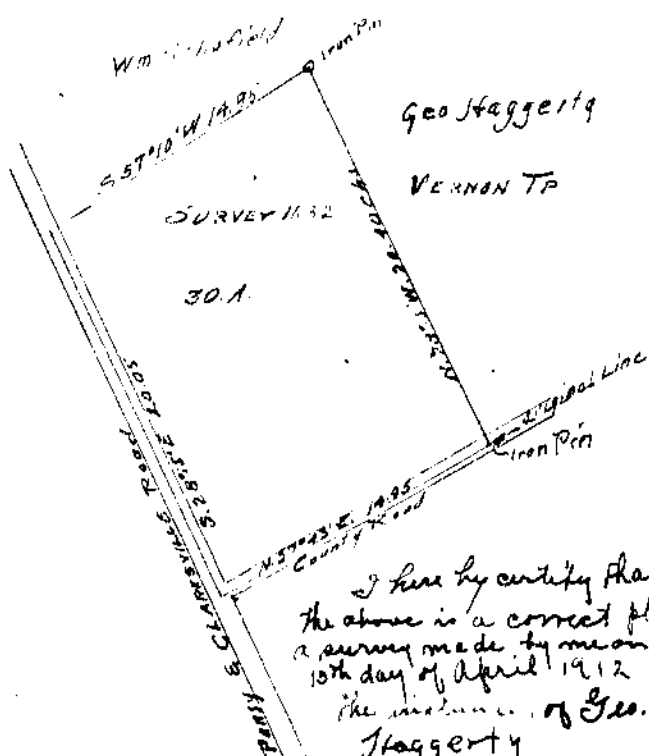 Wm
Iron Pin
S 57°10' W 14.95
Geo Haggerty
VERNON TP
SURVEY 1132
30.A.
S. 28°5' E 20.05
Original Line
Iron Pin
N. 57°43' E. 14.95
County Road
& CLARKSVILLE ROAD
I here by certify tha
the above is a correct pl
a survey made by me on
10th day of April 1912
the of Geo.
Haggerty